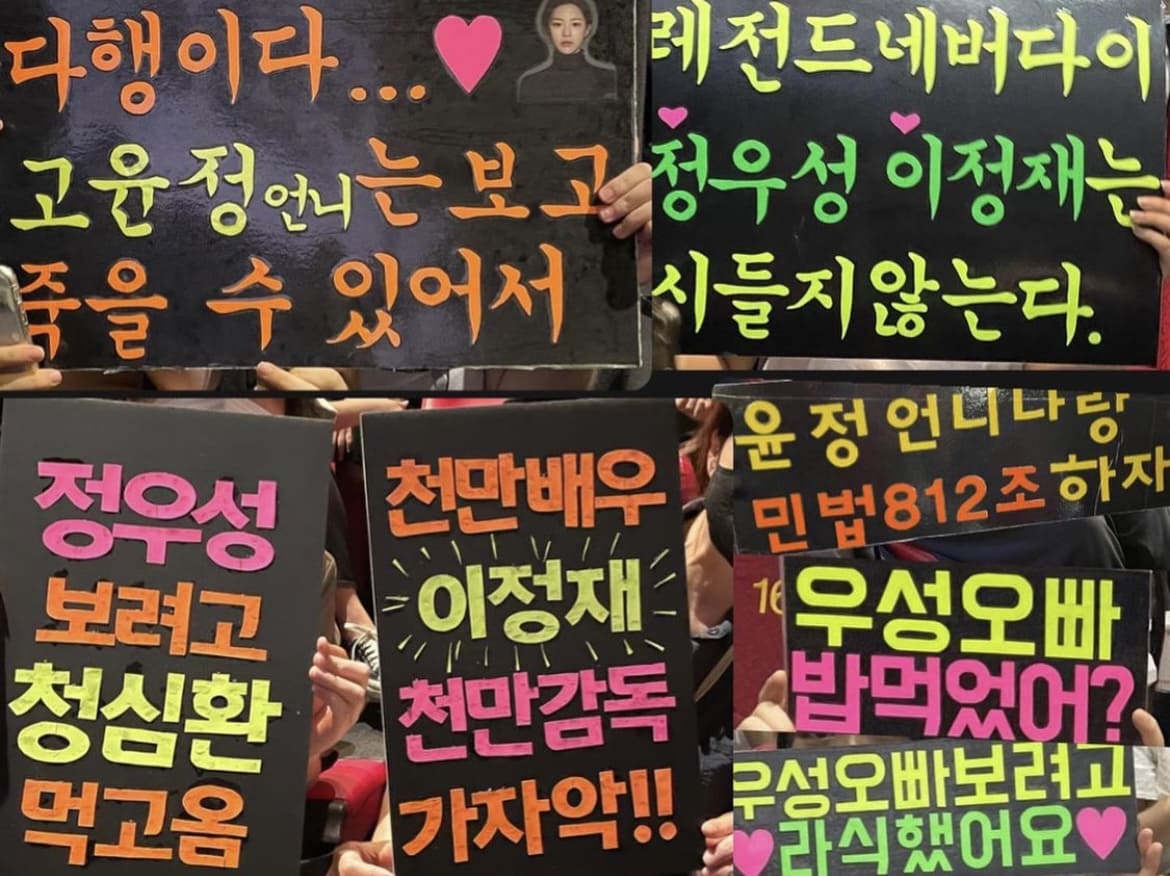 다행이다...
고윤정언니는 보고
죽을 수 있어서
레전드네버다이
정우성 이정재는
시들지않는다.
정우성
보려고
청심환
먹고옴
천만배우
이정재
천만감독
가자악!!
윤정언니나랑
민법812조하자
16
우성오빠
밥먹었어?
우성오빠보려고
라식했어요